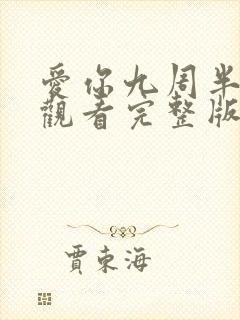 愛你九周半
觀看完整版
賈東海